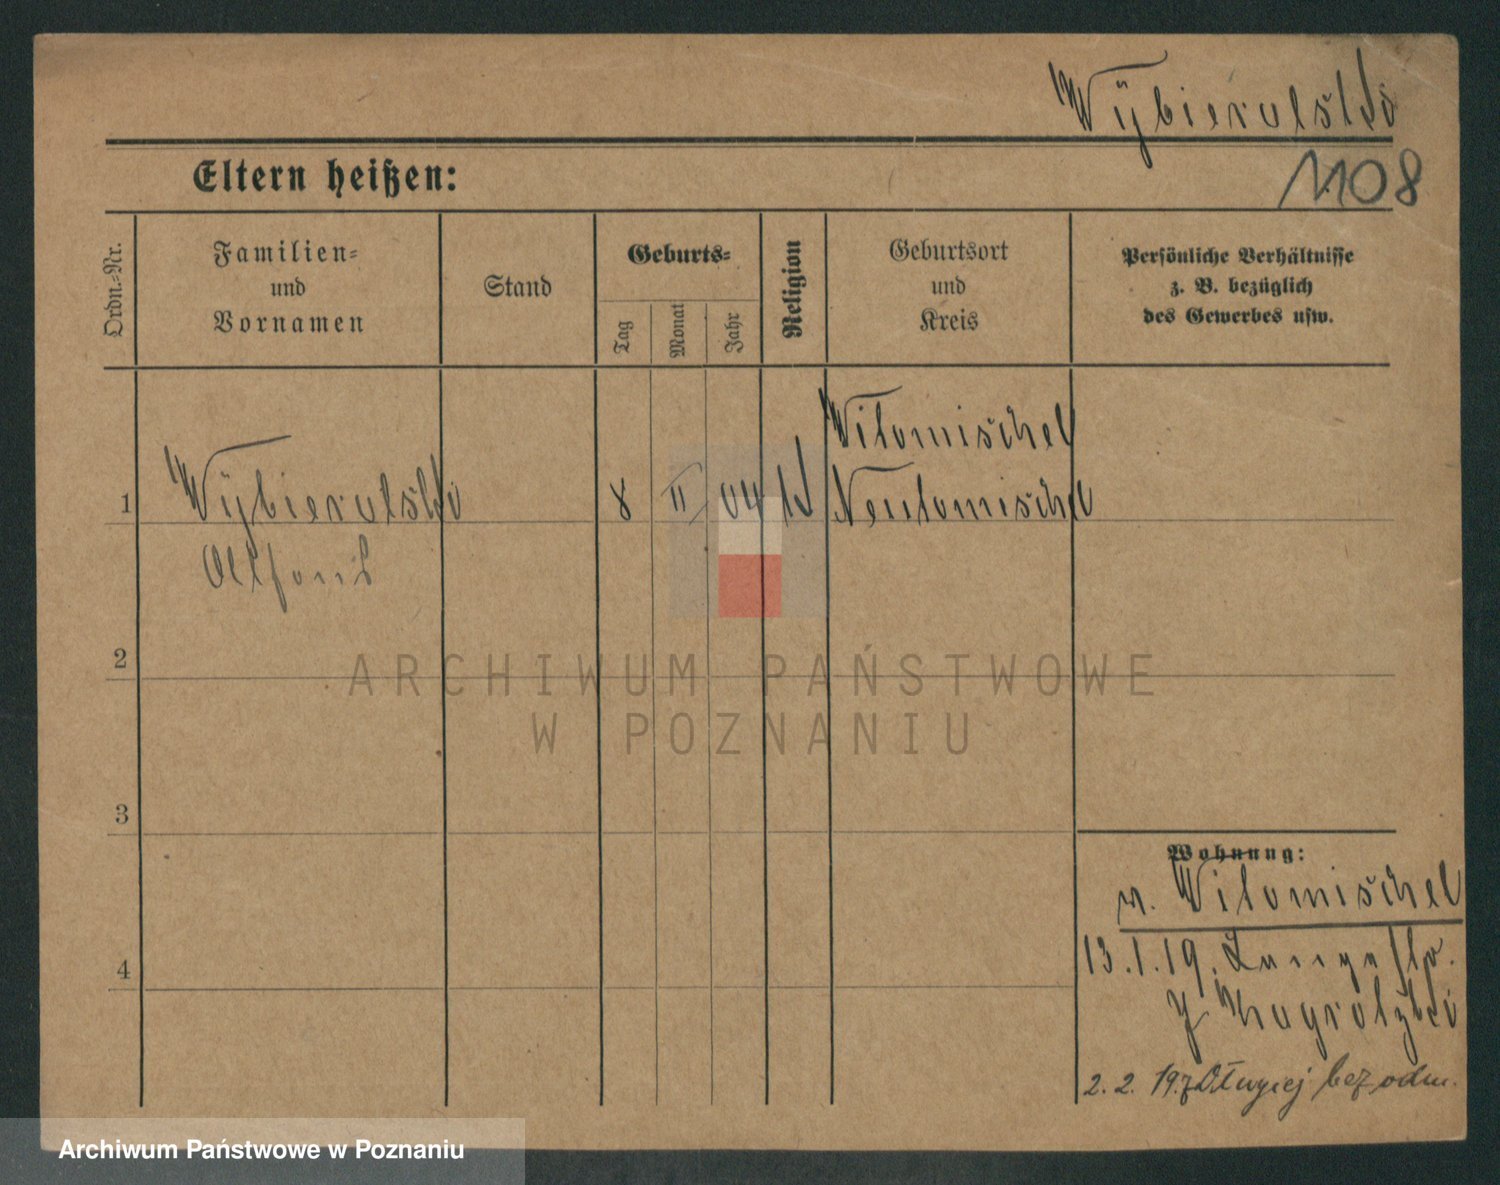 Wybieralski
1108
Eltern heißen:
Ordn.-Nr.
Familien-
und
Vornamen
Stand
Geburts-
Tag
Monat
Jahr
Religion
Geburtsort
und
Kreis
Persönliche Verhältnisse
z. B. bezüglich
des Gewerbes usw.
1
Wybieralski
Alfons
8
II
04
k
Witomischel
Neutomischel
2
3
4
Wohnung:
v. Witomischel
13.1.19. Lange
2.2.19. z Długiej bez odm.
ARCHIWUM PAŃSTWOWE
W POZNANIU
Archiwum Państwowe w Poznaniu